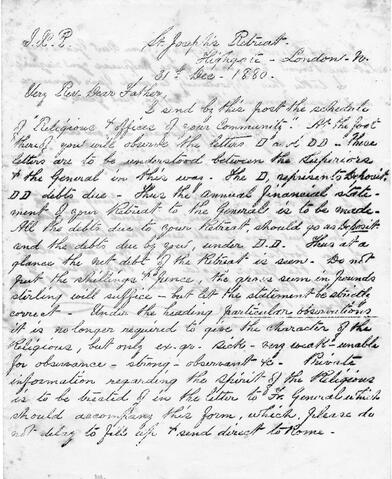 J.X.P.
St. Joseph's Retreat.
Highgate - London - N.
31st Dec - 1880.
Very Rev. Dear Father,
I send by this post the schedule
of "Religious & offices of your Community". At the foot
thereof you will observe the letters D and DD - These
letters are to be understood between the Superiors
& the General in this way. The D, represents Deposit,
DD debts due - Thus the annual financial state-
ment of your Retreat to the General is to be made.
All the debts due to your Retreat, should go as Deposit
and the debts due by you, under D.D. Thus at a
glance the net debt of the Retreat is seen. Do not
put the shillings & pence, the gross sum in pounds
sterling will suffice - but let the statement be strictly
correct - Under the heading particular observations
it is no longer required to give the character of the
Religious, but only ex. gr. sick - very weak - unable
for observance - strong - observant &c. Private
information regarding the spirit of the Religious
is to be treated of in the letter to Fr. General which
should accompany this form, which, please do
not delay to fill up & send direct to Rome -